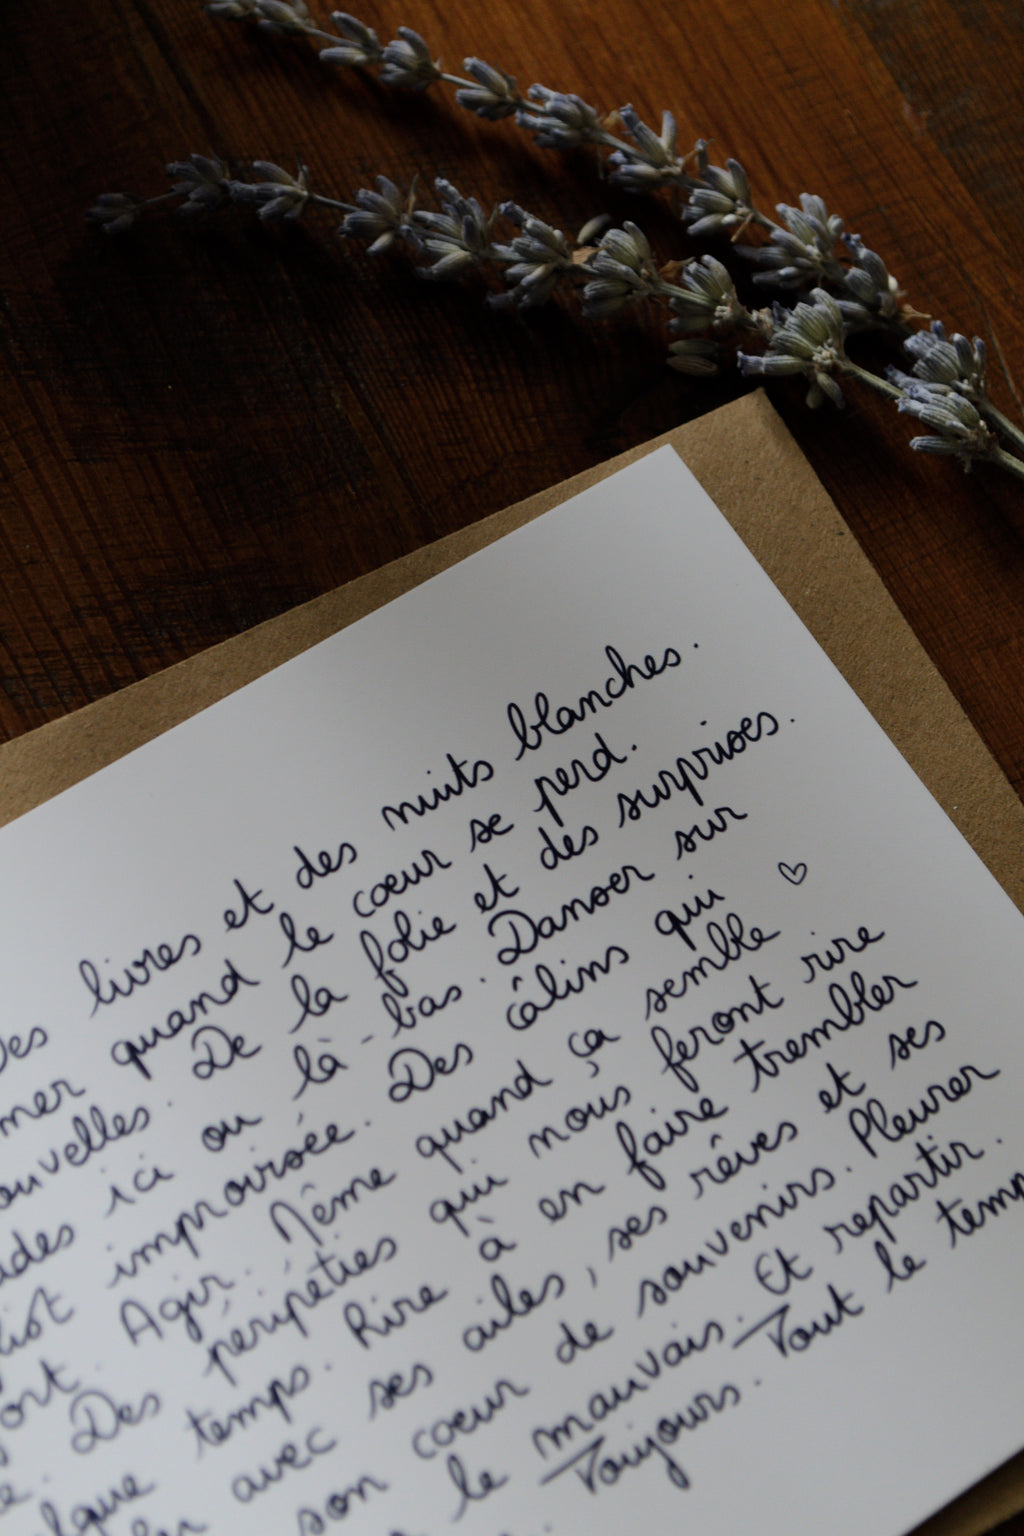 Des livres et des nuits blanches.
mer quand le cœur se perd.
ouvelles. De la folie et des surprises.
ades ici ou là-bas. Danser sur
list improvisée. Des câlins qui
ort. Agir. Même quand ça semble
e. Des péripéties qui nous feront rire
lque temps. Rire à en faire trembler
avec ses ailes, ses rêves et ses
son cœur de souvenirs. Pleurer
le mauvais. Et repartir.
Toujours. Tout le temp